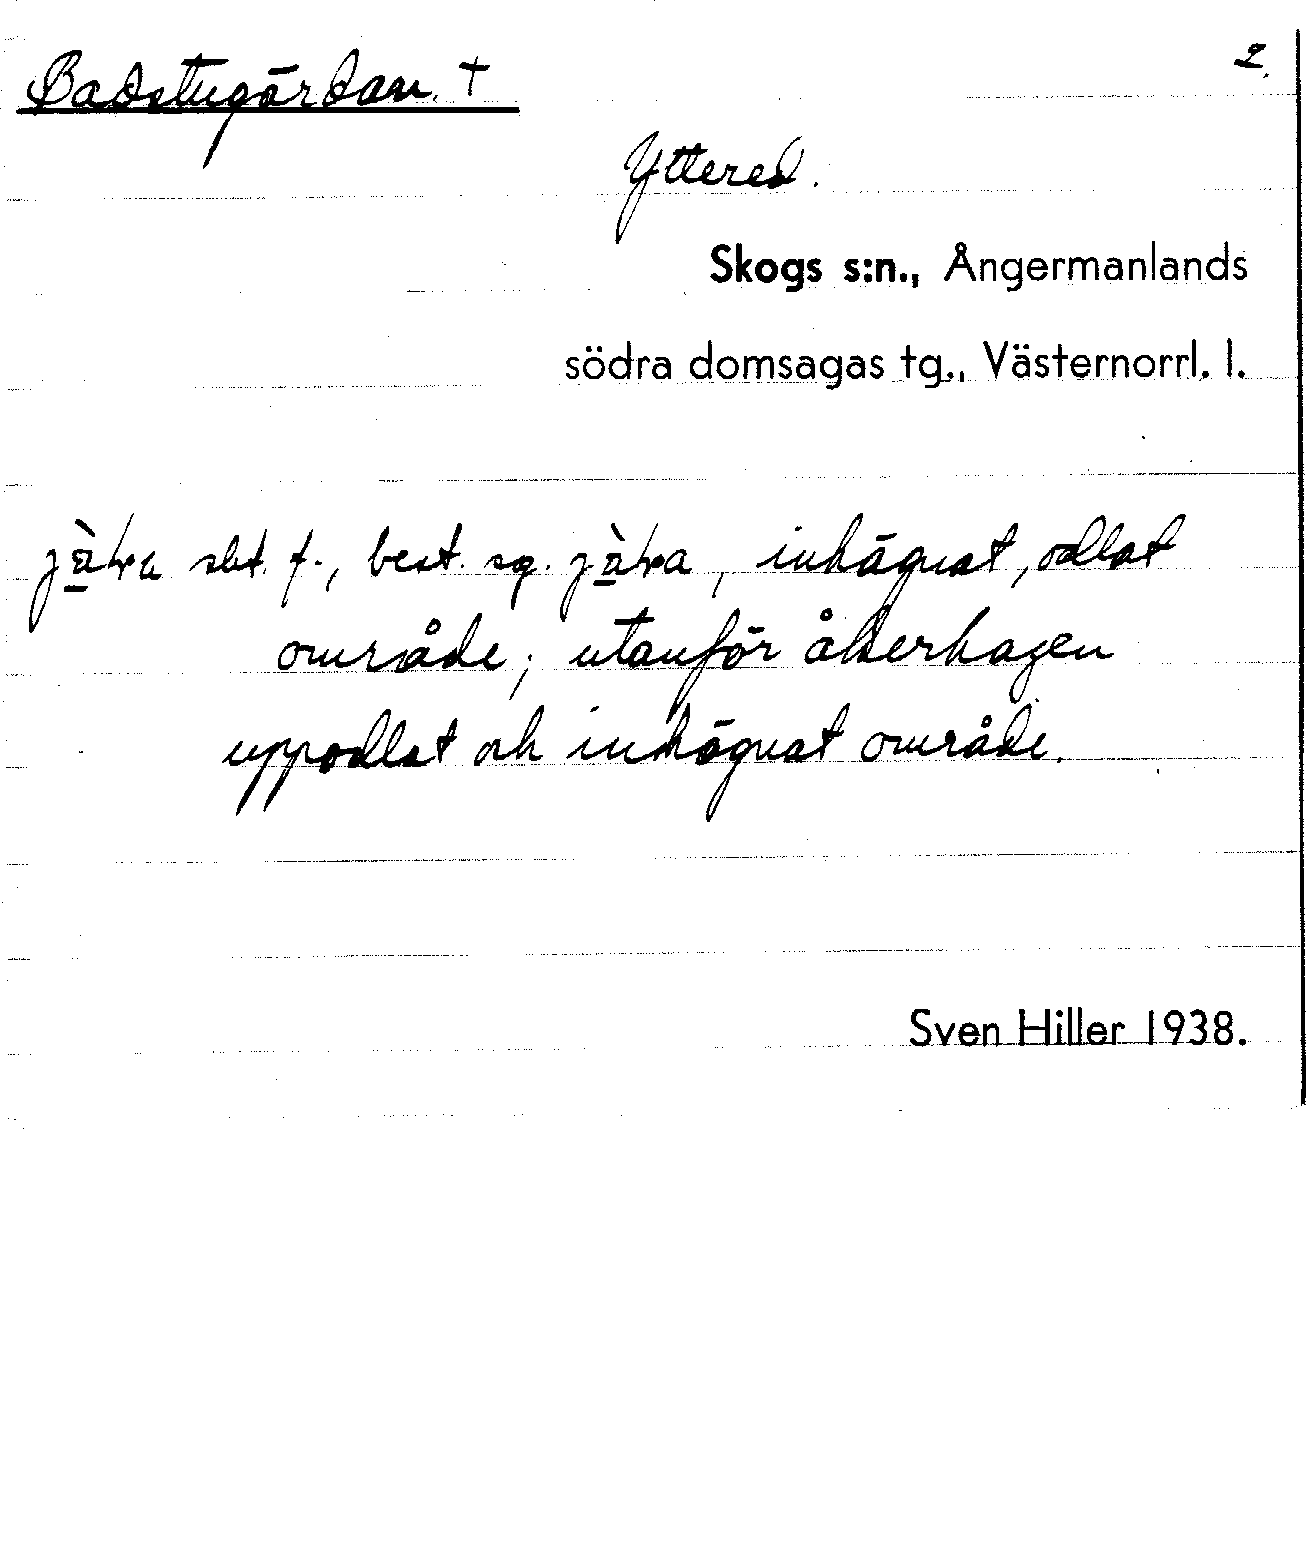 Badstugärdan. +
2.
Yttered.
Skogs s:n., Ångermanlands
södra domsagas tg., Västernorrl. l.
sbt. f., best. sg. , inhägnat, odlat
område; utanför åkerhagen
uppodlat och inhägnat område.
Sven Hiller 1938.